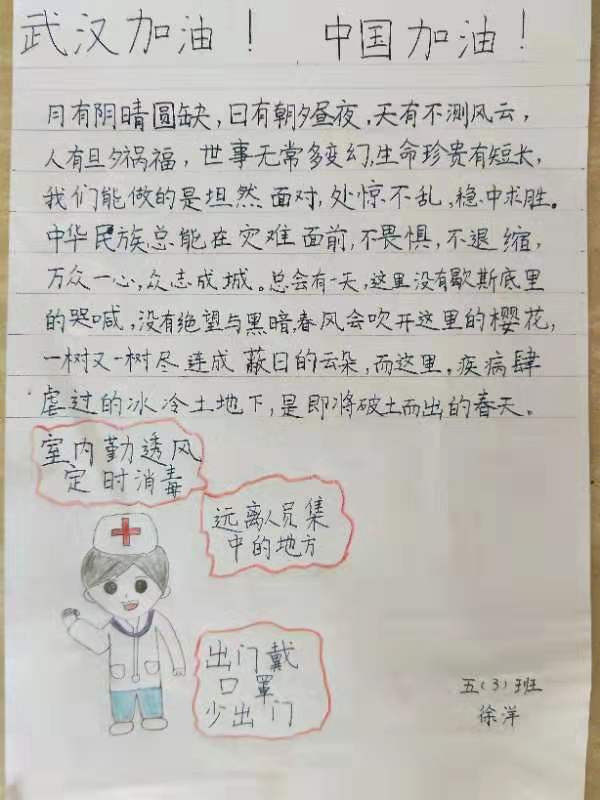 武汉加油! 中国加油!
月有阴晴圆缺,日有朝夕昼夜,天有不测风云,
人有旦夕祸福,世事无常多变幻,生命珍贵有短长,
我们能做的是坦然面对,处惊不乱,稳中求胜。
中华民族总能在灾难面前,不畏惧,不退缩,
万众一心,众志成城。总会有一天,这里没有歇斯底里
的哭喊,没有绝望与黑暗,春风会吹开这里的樱花,
一树又一树尽连成蔽日的云朵,而这里。疾病肆
虐过的冰冷土地下,是即将破土而出的春天。
室内勤透风
定时消毒
远离人员集
中的地方
出门戴
口罩
少出门
五(3)班
徐洋